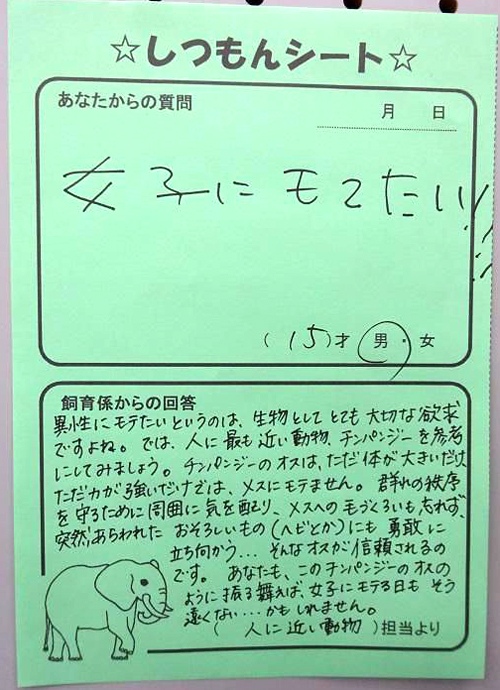 ☆しつもんシート☆
あなたからの質問
月 日
女子にモてたい!!
(15)才 男・女
飼育係からの回答
異性にモテたいというのは、生物としてとても大切な欲求
ですよね。では、人に最も近い動物、チンパンジーを参考
にしてみましょう。チンパンジーのオスは、ただ体が大きいだけ、
ただ力が強いだけでは、メスにモテません。群れの秩序
を守るために周囲に気を配り、メスへの毛づくろいも忘れず、
突然あらわれた おそろしいもの(ヘビとか)にも 勇敢に
立ち向かう… そんなオスが信頼されるの
です。 あなたも、このチンパンジーのオスの
ように振る舞えば、女子にモテる日も そう
遠くない…かもしれません。
( 人に近い動物 )担当より